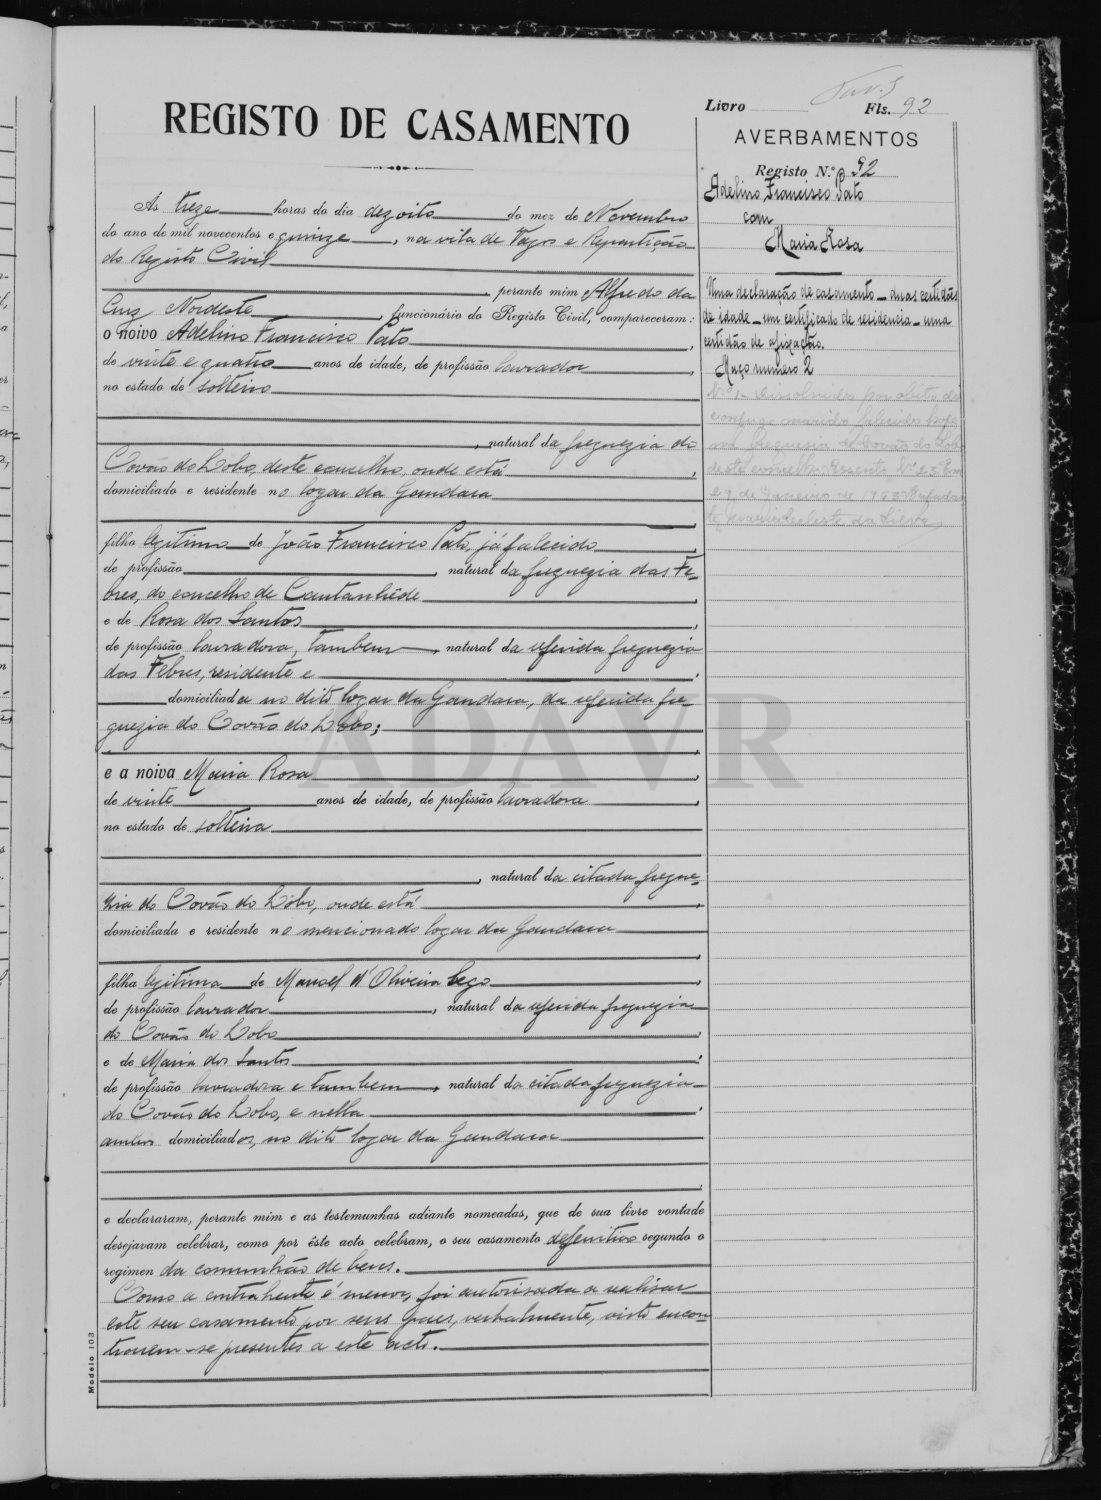 Livro Fls. 92
REGISTO DE CASAMENTO
AVERBAMENTOS
Registo N.º 92
Adelino Francisco Pato
com
Maria Rosa
Uma declaração de casamento - duas certidões
de idade - um certificado de residencia - uma
certidão de afixação.
Maço numero 2
Nº 1 - Dissolvido por obito do
conjuge marido falecido hoje
na freguesia de Covão do Lobo
deste concelho Assento Nº 23 Em
29 de Janeiro de 1963
As treze horas do dia dezoito do mez de Novembro
do ano de mil novecentos e quinze, na vila de Vagos e Repartição
do Registo Civil
, perante mim Alfredo da
Cruz Nordeste, funcionário do Registo Civil, compareceram:
o noivo Adelino Francisco Pato,
de vinte e quatro anos de idade, de profissão lavrador,
no estado de solteiro
, natural da freguezia do
Covão do Lobo, deste concelho, onde está,
domiciliado e residente no logar da Gandara
,
filho legitimo de João Francisco Pato, já falecido,
de profissão, natural da freguezia das Fe-
bres, do concelho de Cantanhêde,
e de Rosa dos Santos,
de profissão lavradora, tambem, natural da referida freguezia
das Febres, residente e,
domiciliada no dito logar da Gandara, da referida fre-
guezia do Covão do Lobo;
,
e a noiva Maria Rosa,
de vinte anos de idade, de profissão lavradora,
no estado de solteira
, natural da citada fregue-
zia do Covão do Lobo, onde está,
domiciliada e residente no mencionado logar da Gandara
,
filha legitima de Manoel d'Oliveira Cego,
de profissão lavrador, natural da referida freguezia
do Covão do Lobo,
e de Maria dos Santos,
de profissão lavradora e tambem, natural da citada freguezia
do Covão do Lobo, e nella,
ambos domiciliados, no dito logar da Gandara
,
e declararam, perante mim e as testemunhas adiante nomeadas, que de sua livre vontade
desejavam celebrar, como por êste acto celebram, o seu casamento defenitivo segundo o
regimen da comunhão de bens.
Como a contrahente é menor, foi autorisada a realisar
este seu casamento por seus paes, verbalmente, visto encon
trarem-se presentes a este acto.
Modelo 103
ADAVR